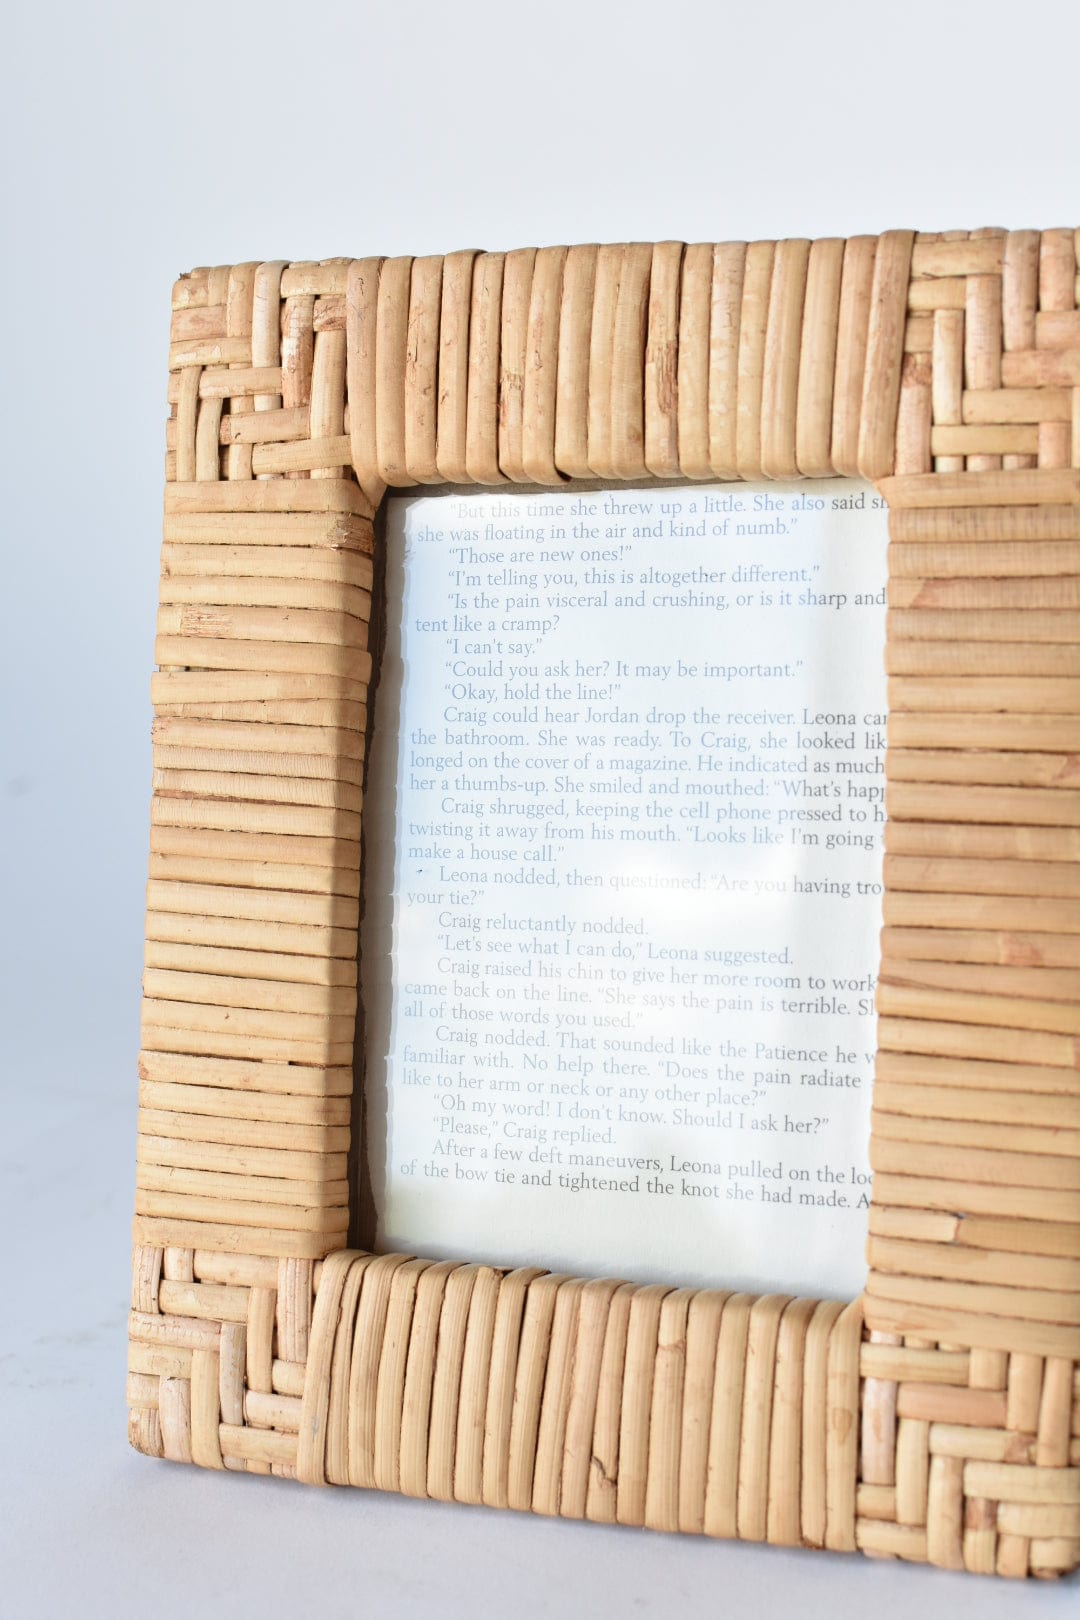 “But this time she threw up a little. She also said
she was floating in the air and kind of numb.”
“Those are new ones!”
“I’m telling you, this is altogether different.”
“Is the pain visceral and crushing, or is it sharp and
tent like a cramp?
“I can’t say.”
“Could you ask her? It may be important.”
“Okay, hold the line!”
Craig could hear Jordan drop the receiver. Leona
the bathroom. She was ready. To Craig, she looked
longed on the cover of a magazine. He indicated as much
her a thumbs-up. She smiled and mouthed: “What’s
Craig shrugged, keeping the cell phone pressed to
twisting it away from his mouth. “Looks like I’m going
make a house call.”
Leona nodded, then questioned: “Are you having
your tie?”
Craig reluctantly nodded.
“Let’s see what I can do,” Leona suggested.
Craig raised his chin to give her more room to work
came back on the line. “She says the pain is terrible.
all of those words you used.”
Craig nodded. That sounded like the Patience he
familiar with. No help there. “Does the pain radiate
like to her arm or neck or any other place?”
“Oh my word! I don’t know. Should I ask her?”
“Please,” Craig replied.
After a few deft maneuvers, Leona pulled on the
of the bow tie and tightened the knot she had made.